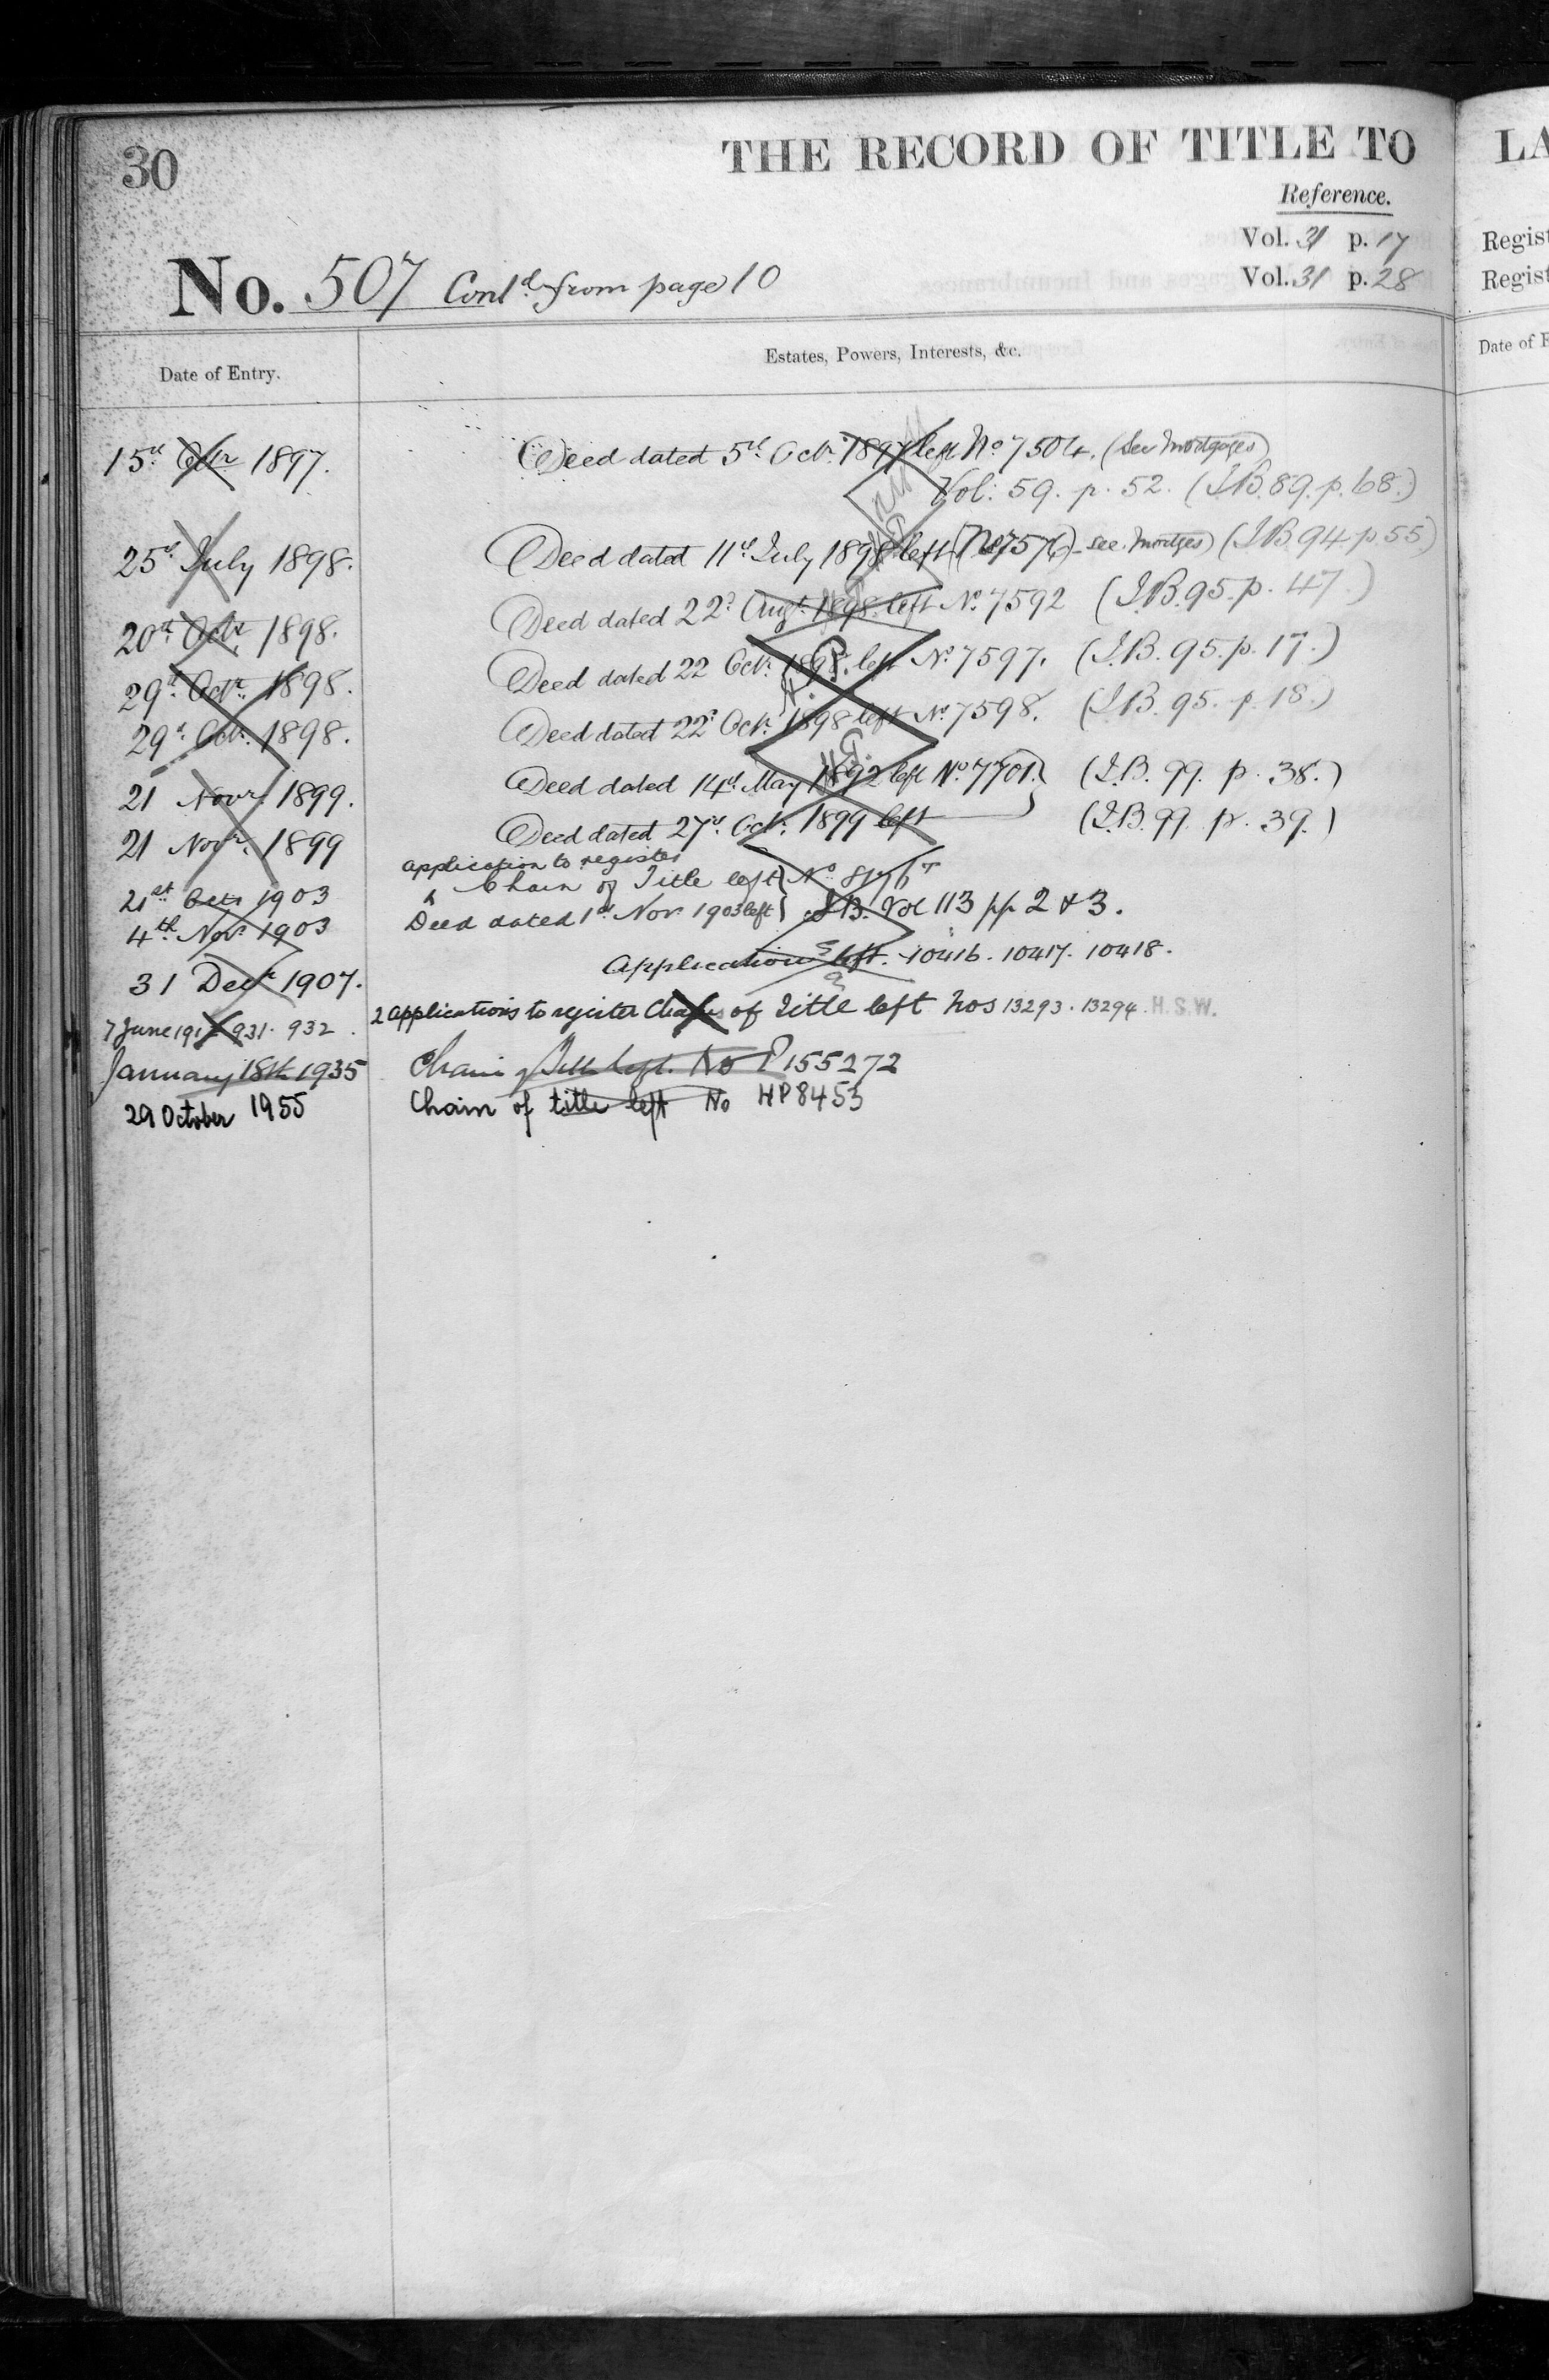 30
THE RECORD OF TITLE TO
LA
Reference.
Vol. 31 p. 17
Vol. 31 p. 28
Regist
Regist
No. 507 Contd from page 10
Date of Entry.
Estates, Powers, Interests, &c.
Date of E
15th Octr 1897. Deed dated 5th Octr. 1897 left No 7504. (See Mortgages)
Vol: 59. p. 52. (I.B. 89. p. 68.)
25th July 1898. Deed dated 11th July 1898 left (No 7576) - see Mortges) (I.B. 94. p. 55)
20th Octr 1898. Deed dated 22d Augt. 1898. left No. 7592 (I.B. 95. p. 47.)
29th Octr. 1898. Deed dated 22 Octr. 1898. left No. 7597. (I.B. 95. p. 17.)
29th Octr. 1898. Deed dated 22d Octr. 1898 left No. 7598. (I.B. 95. p. 18.)
21 Novr. 1899. Deed dated 14th May 1892 left No. 7701. (I.B. 99. p. 38.)
21 Novr. 1899 Deed dated 27th Octr. 1899 left (I.B. 99. p. 39.)
application to register
21st Octr 1903 Chain of Title left No
4th Novr 1903 Deed dated 1st Nov. 1903 left I.B. Vol 113 pp 2 & 3.
31 Decr 1907. Applications left. 10416. 10417. 10418.
7 June 931. 932. 2 applications to register Chains of Title left Nos 13293. 13294. H.S.W.
January 18th 1935 Chain of Title left. No P155272
29 October 1955 Chain of title left No HP8453